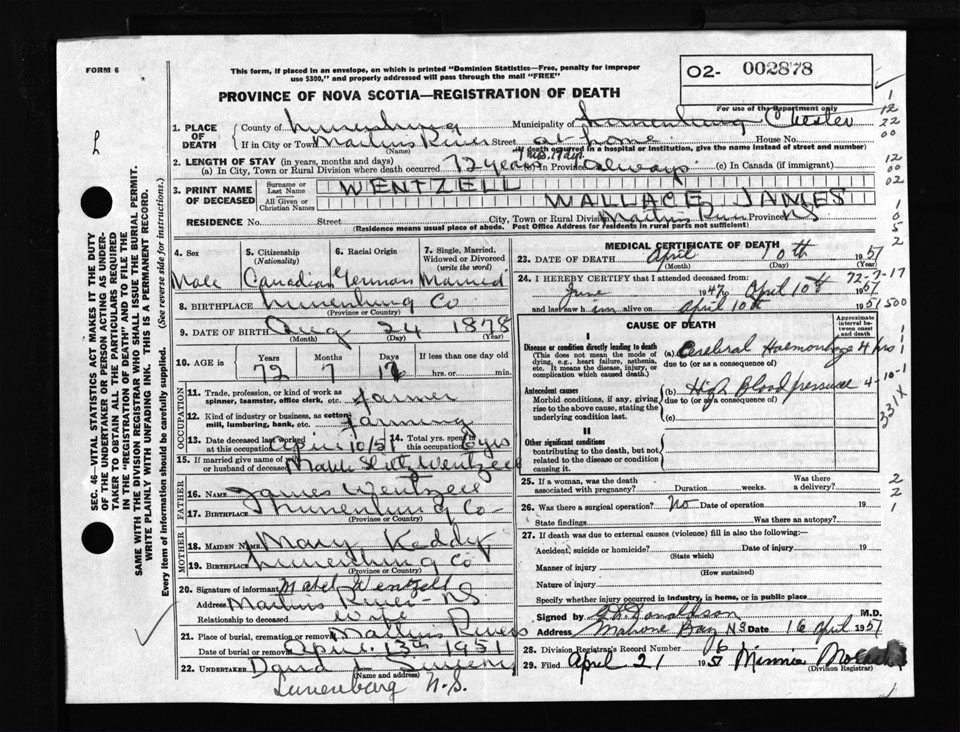 FORM 6
This form, if placed in an envelope, on which is printed "Dominion Statistics—Free, penalty for improper
use $300," and properly addressed will pass through the mail "FREE"
02- 002878
PROVINCE OF NOVA SCOTIA—REGISTRATION OF DEATH
For use of the Department only
1. PLACE OF DEATH County of Lunenburg Municipality of Lunenburg Chester
If in City or Town Martins River Street at home House No.
(If death occurred in a hospital or institution, give the name instead of street and number)
2. LENGTH OF STAY (in years, months and days)
(a) In City, Town or Rural Division where death occurred 72 years 7 mos. 17 days (b) In Province always (c) In Canada (if immigrant)
3. PRINT NAME OF DECEASED Surname or Last Name WENTZELL
All Given or Christian Names WALLACE JAMES
RESIDENCE No. Street City, Town or Rural Division Martins River Province NS
(Residence means usual place of abode. Post Office Address for residents in rural parts not sufficient)
4. Sex Male
5. Citizenship (Nationality) Canadian
6. Racial Origin German
7. Single, Married, Widowed or Divorced (write the word) Married
8. BIRTHPLACE Lunenburg Co
(Province or Country)
9. DATE OF BIRTH Aug 24 1878
(Month) (Day) (Year)
10. AGE IN Years Months Days If less than one day old
72 7 17 hrs. or min.
OCCUPATION
11. Trade, profession, or kind of work as spinner, teamster, office clerk, etc. farmer
12. Kind of industry or business, as cotton mill, lumbering, bank, etc. farming
13. Date deceased last worked at this occupation April 10/51 14. Total yrs. spent in this occupation yrs
15. If married give name of wife or husband of deceased Mable Wentzell
FATHER
16. NAME James Wentzell
17. BIRTHPLACE Lunenburg Co
(Province or Country)
MOTHER
18. MAIDEN NAME Mary Keddy
19. BIRTHPLACE Lunenburg Co
(Province or Country)
20. Signature of informant Mabel Wentzell
Address Martins River NS
Relationship to deceased wife
21. Place of burial, cremation or removal Martins River
Date of burial or removal April 13th 1951
22. UNDERTAKER David L
(Name and address)
Lunenburg N.S.
MEDICAL CERTIFICATE OF DEATH
23. DATE OF DEATH April 10th 1951
(Month) (Day) (Year)
24. I HEREBY CERTIFY that I attended deceased from 72-7-17
June 1947 to April 10th 1951
and last saw him alive on April 10th 1951 500
CAUSE OF DEATH
Approximate interval between onset and death
I
Disease or condition directly leading to death (a) Cerebral Haemorrhage 4 hrs
(This does not mean the mode of dying, e.g., heart failure, asthenia, etc. It means the disease, injury, or complication which caused death.)
due to (or as a consequence of)
Antecedent causes (b) High Blood pressure 4
Morbid conditions, if any, giving rise to the above cause, stating the underlying condition last.
due to (or as a consequence of)
(c)
331X
II
Other significant conditions
contributing to the death, but not related to the disease or condition causing it.
25. If a woman, was the death associated with pregnancy? Duration weeks. Was there a delivery?
26. Was there a surgical operation? No Date of operation 19
State findings Was there an autopsy?
27. If death was due to external causes (violence) fill in also the following:
Accident, suicide or homicide? Date of injury 19
(State which)
Manner of injury
(How sustained)
Nature of injury
Specify whether injury occurred in industry, in home, or in public place
Signed by Donaldson M.D.
Address Mahone Bay NS Date 16 April 1951
28. Division Registrar's Record Number 16
29. Filed April 21 1951 Minnie
(Division Registrar)
SEC. 46—VITAL STATISTICS ACT MAKES IT THE DUTY
OF THE UNDERTAKER OR PERSON ACTING AS UNDER-
TAKER TO OBTAIN ALL THE PARTICULARS REQUIRED
IN THE "REGISTRATION OF DEATH" AND TO FILE THE
SAME WITH THE DIVISION REGISTRAR WHO SHALL ISSUE THE BURIAL PERMIT.
WRITE PLAINLY WITH UNFADING INK. THIS IS A PERMANENT RECORD.
Every item of information should be carefully supplied. (See reverse side for instructions.)